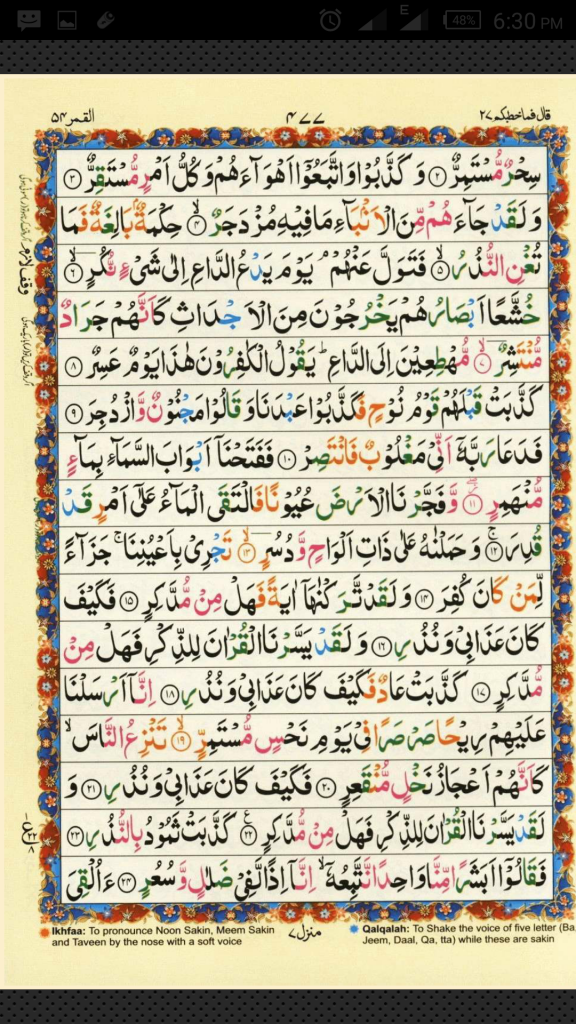 E 48% 6:30 PM
القمر ٥٤ ٤٧٧ قال فما خطبكم ٢٧
سِحْرٌ مُّسْتَمِرٌّ ﴿٢﴾ وَكَذَّبُوْا وَاتَّبَعُوْۤا اَهْوَآءَهُمْ وَكُلُّ اَمْرٍ مُّسْتَقِرٌّ ﴿٣﴾
وَلَقَدْ جَآءَهُمْ مِّنَ الْاَنْۢبَآءِ مَا فِيْهِ مُزْدَجَرٌ ﴿٤﴾ حِكْمَةٌۢ بَالِغَةٌ فَمَا
تُغْنِ النُّذُرُ ﴿٥﴾ فَتَوَلَّ عَنْهُمْ ۘ يَوْمَ يَدْعُ الدَّاعِ اِلٰى شَىْءٍ نُّكُرٍ ﴿٦﴾
خُشَّعًا اَبْصَارُهُمْ يَخْرُجُوْنَ مِنَ الْاَجْدَاثِ كَاَنَّهُمْ جَرَادٌ
مُّنْتَشِرٌ ﴿٧﴾ مُّهْطِعِيْنَ اِلَى الدَّاعِ ؕ يَقُوْلُ الْكٰفِرُوْنَ هٰذَا يَوْمٌ عَسِرٌ ﴿٨﴾
كَذَّبَتْ قَبْلَهُمْ قَوْمُ نُوْحٍ فَكَذَّبُوْا عَبْدَنَا وَقَالُوْا مَجْنُوْنٌ وَّازْدُجِرَ ﴿٩﴾
فَدَعَا رَبَّهٗۤ اَنِّىْ مَغْلُوْبٌ فَانْتَصِرْ ﴿١٠﴾ فَفَتَحْنَاۤ اَبْوَابَ السَّمَآءِ بِمَآءٍ
مُّنْهَمِرٍ ﴿١١﴾ وَّفَجَّرْنَا الْاَرْضَ عُيُوْنًا فَالْتَقَى الْمَآءُ عَلٰٓى اَمْرٍ قَدْ
قُدِرَ ﴿١٢﴾ وَحَمَلْنٰهُ عَلٰى ذَاتِ اَلْوَاحٍ وَّدُسُرٍ ﴿١٣﴾ تَجْرِىْ بِاَعْيُنِنَا ۚ جَزَآءً
لِّمَنْ كَانَ كُفِرَ ﴿١٤﴾ وَلَقَدْ تَّرَكْنٰهَاۤ اٰيَةً فَهَلْ مِنْ مُّدَّكِرٍ ﴿١٥﴾ فَكَيْفَ
كَانَ عَذَابِىْ وَنُذُرِ ﴿١٦﴾ وَلَقَدْ يَسَّرْنَا الْقُرْاٰنَ لِلذِّكْرِ فَهَلْ مِنْ
مُّدَّكِرٍ ﴿١٧﴾ كَذَّبَتْ عَادٌ فَكَيْفَ كَانَ عَذَابِىْ وَنُذُرِ ﴿١٨﴾ اِنَّاۤ اَرْسَلْنَا
عَلَيْهِمْ رِيْحًا صَرْصَرًا فِىْ يَوْمِ نَحْسٍ مُّسْتَمِرٍّ ﴿١٩﴾ تَنْزِعُ النَّاسَ ۙ
كَاَنَّهُمْ اَعْجَازُ نَخْلٍ مُّنْقَعِرٍ ﴿٢٠﴾ فَكَيْفَ كَانَ عَذَابِىْ وَنُذُرِ ﴿٢١﴾ وَ
لَقَدْ يَسَّرْنَا الْقُرْاٰنَ لِلذِّكْرِ فَهَلْ مِنْ مُّدَّكِرٍ ﴿٢٢﴾ كَذَّبَتْ ثَمُوْدُ بِالنُّذُرِ ﴿٢٣﴾
فَقَالُوْۤا اَبَشَرًا مِّنَّا وَاحِدًا نَّتَّبِعُهٗۤ ۙ اِنَّاۤ اِذًا لَّفِىْ ضَلٰلٍ وَّسُعُرٍ ﴿٢٤﴾ ءَاُلْقِىَ
وقف لازم
منزل ٧
Ikhfaa: To pronounce Noon Sakin, Meem Sakin
and Taveen by the nose with a soft voice
Qalqalah: To Shake the voice of five letter (Ba
Jeem, Daal, Qa, tta) while these are sakin